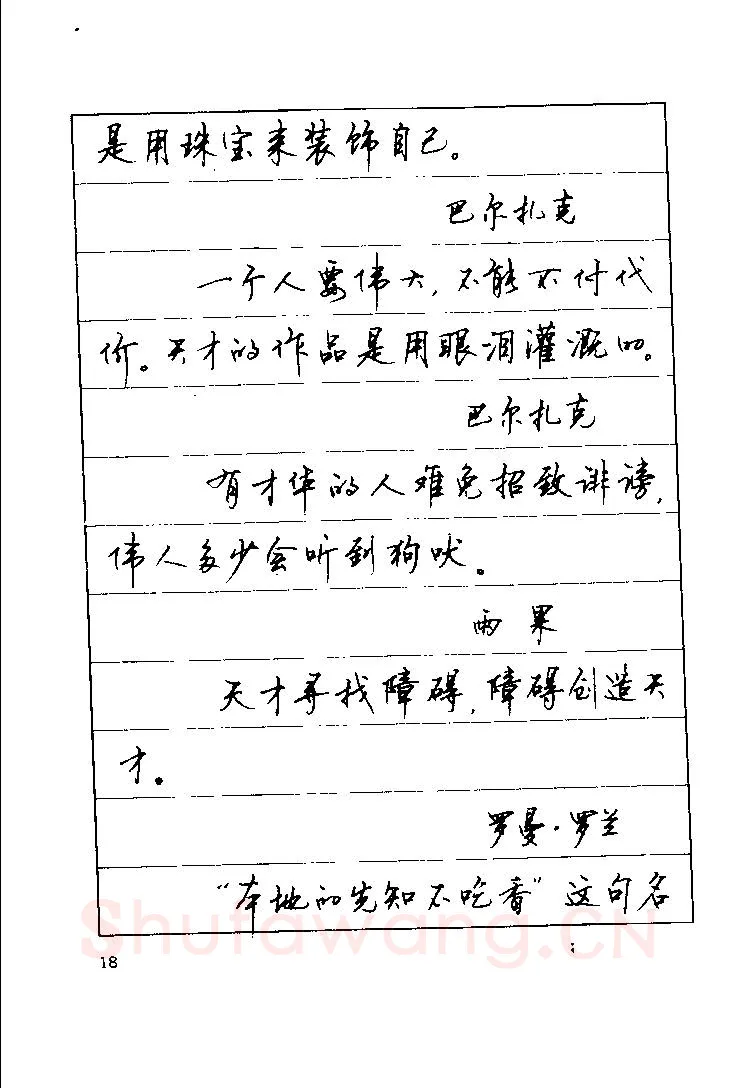 是用珠宝来装饰自己。
巴尔扎克
一个人要伟大，不能不付代
价。天才的作品是用眼泪灌溉的。
巴尔扎克
有才华的人难免招致诽谤，
伟人多少会听到狗吠。
雨果
天才寻找障碍，障碍创造天
才。
罗曼·罗兰
“本地的先知不吃香”这句名
Shufawang.CN
18